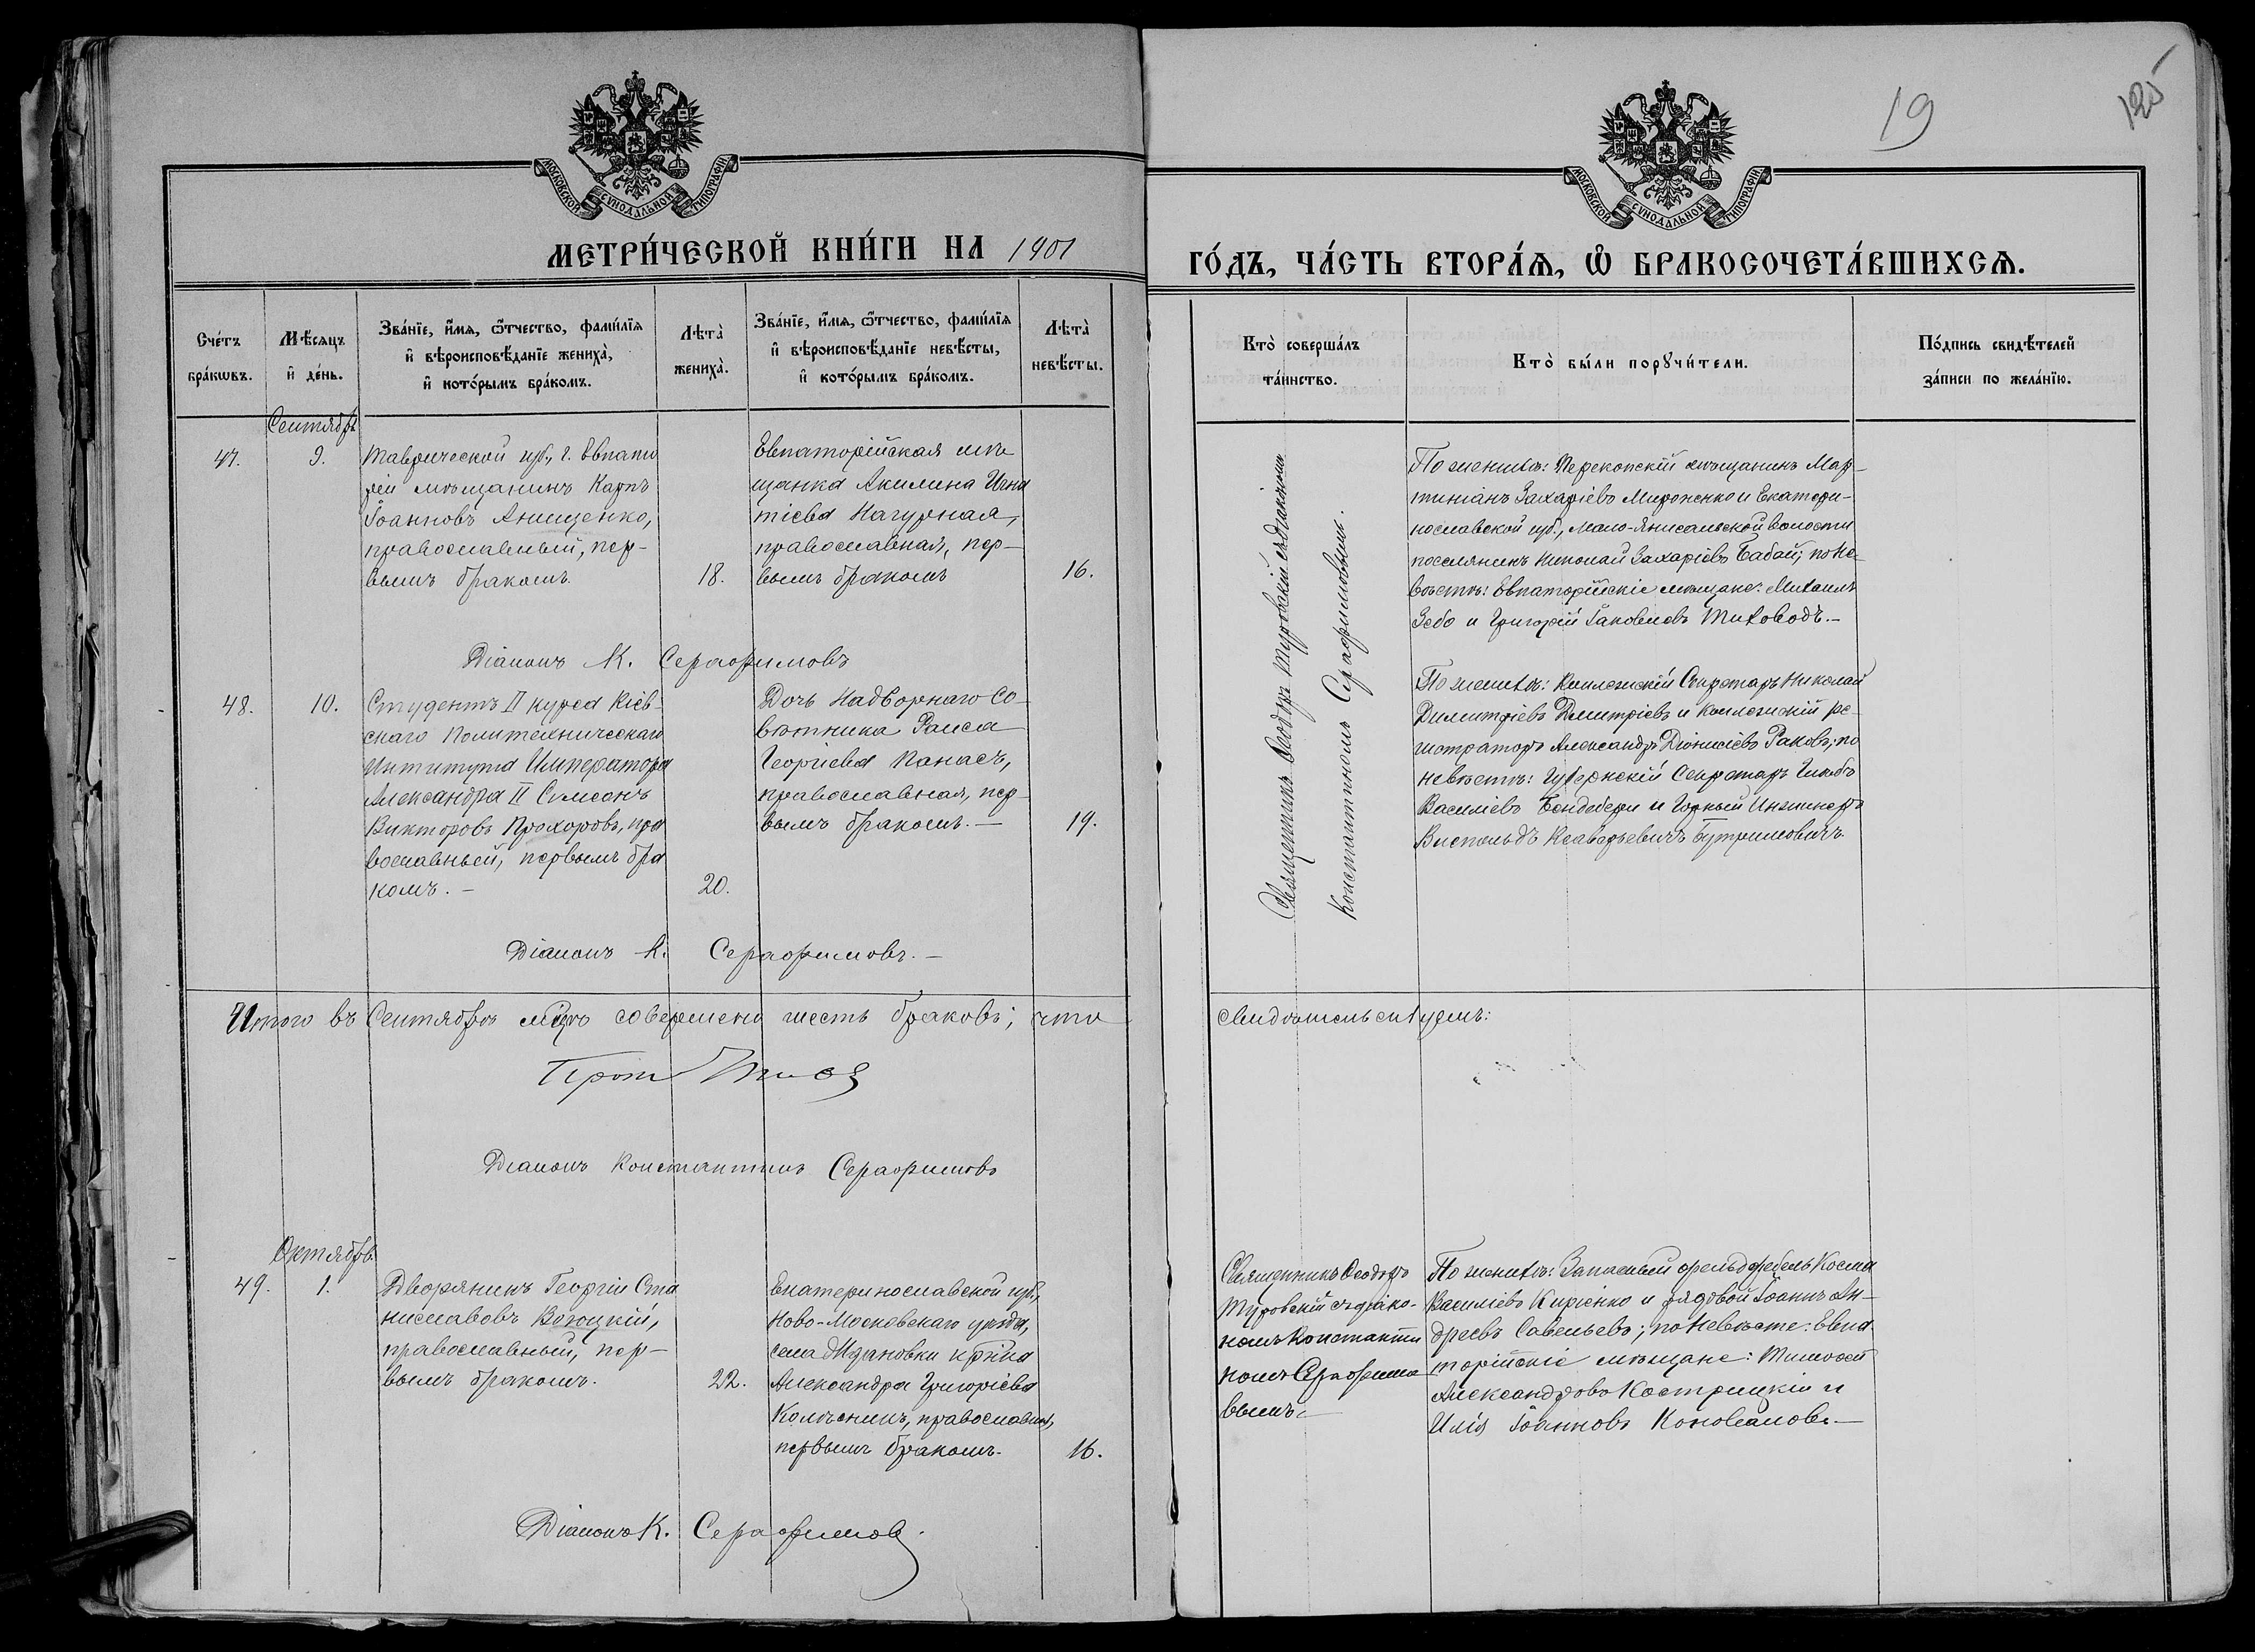 19
125
МОСКОВСКОЙ СУНОДАЛЬНОЙ ТИПОГРАФІИ
МОСКОВСКОЙ СУНОДАЛЬНОЙ ТИПОГРАФІИ
МЕТРИ́ЧЕСКОЙ КНИ́ГИ НА 1901
ГО́ДЪ, ЧА́СТЬ ВТОРА́Ѧ, Ѽ БРАКОСОЧЕТА́ВШИХСѦ.
Сче́тъ
бра́кѡвъ.
Мѣ́сѧцъ
и҆ де́нь.
Зва́нїе, и҆́мѧ, ѻ҆́тчество, фами́лїѧ
и҆ вѣроисповѣ́данїе жениха̀,
и҆ кото́рымъ бра́комъ.
Лѣта̀
жениха̀.
Зва́нїе, и҆́мѧ, ѻ҆́тчество, фами́лїѧ
и҆ вѣроисповѣ́данїе невѣ́сты,
и҆ кото́рымъ бра́комъ.
Лѣта̀
невѣ́сты.
Кто̀ соверша́лъ
та́инство.
Кто̀ бы́ли порꙋчи́тели.
По́дпись свидѣ́телей
за́писи по жела́нїю.
Сентябрь
47.
9.
Таврической губ., г. Евпато
ріи мѣщанинъ Карпъ
Іоанновъ Анищенко,
православный, пер-
вымъ бракомъ.
18.
Евпаторійская мѣ
щанка Акилина Игна
тіева Нагурная,
православная, пер-
вымъ бракомъ
16.
Священникъ Ѳеодоръ Туровскій съ діакономъ
Константиномъ Серафимовымъ.
По женихѣ: Перекопскій мѣщанинъ Мар-
тиніанъ Захаріевъ Мироненко и Екатери-
нославской губ., Мало-Янисальской волости
поселянинъ Николай Захаріевъ Бабай; по не-
вѣстѣ: Евпаторійскіе мѣщане: Михаилъ
Зебо и Григорій Іаковлевъ Тиховодъ.-
Діаконъ К. Серафимовъ
48.
10.
Студентъ II курса Кіев-
скаго Политехническаго
Института Императора
Александра II Симеонъ
Викторовъ Прохоровъ, пра
вославный, первымъ бра
комъ.-
20.
Дочь Надворнаго Со-
вѣтника Раиса
Георгіева Панасъ,
православная, пер-
вымъ бракомъ.-
19.
По женихѣ: Коллежскій Секретарь Николай
Димитріевъ Дмитріевъ и Коллежскій ре-
гистраторъ Александръ Діонисіевъ Раковъ; по
невѣстѣ: Губернскій Секретарь Глѣбъ
Василіевъ Бендебери и Горный Инженеръ
Витольдъ Ксаверьевичъ Бутримовичъ
Діаконъ К. Серафимовъ.-
Итого въ Сентябрѣ мѣцѣ совершено шесть браковъ; что
свидѣтельствуемъ:
Діаконъ Константинъ Серафимовъ
Октябрь
49.
1.
Дворянинъ Георгій Ста
ниславовъ Высоцкій,
православный, пер-
вымъ бракомъ.
22.
Екатеринославской губ.,
Ново-Московскаго уѣзда,
села крѣка
Александра Григоріева
Колѣсникъ, православная,
первымъ бракомъ.
16.
Священникъ Ѳеодоръ
Туровскій съ діако-
номъ Константи
номъ Серафимо
вымъ.-
По женихѣ: Запасный фельдфебель Косма
Василіевъ Киріенко и рядовой Іоаннъ Ан-
дреевъ Савельевъ; по невѣстѣ: Евпа-
торійскіе мѣщане: Тимоѳей
Александровъ Кострицкій и
Илія Іоанновъ Коноваловъ.-
Діаконъ К. Серафимовъ.